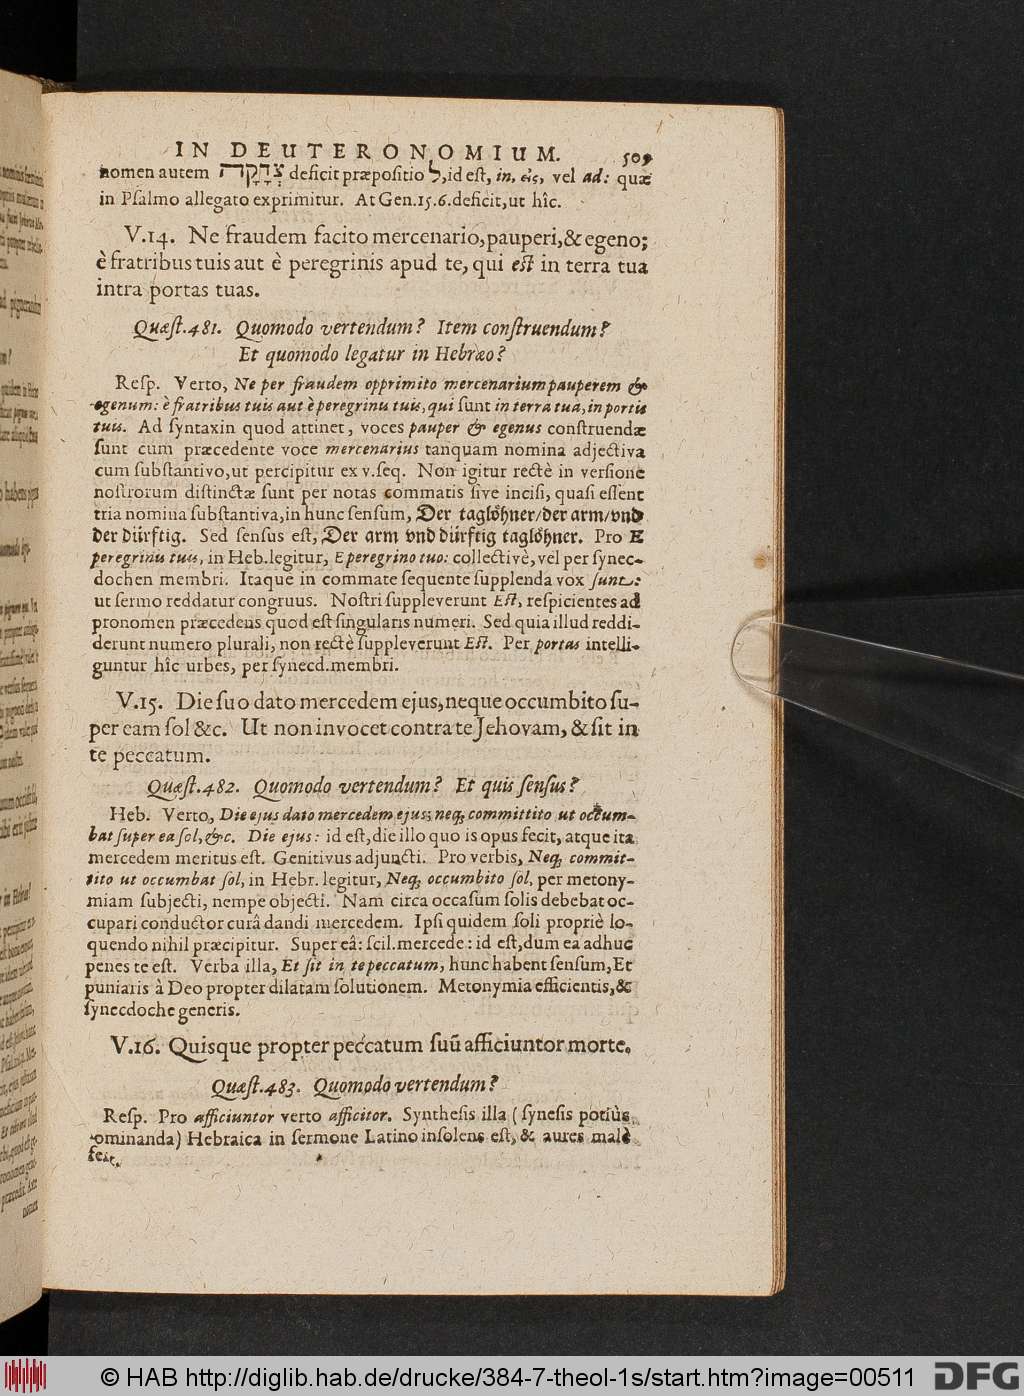 IN DEUTERONOMIUM. 509
nomen autem צְדָקָה deficit præpositio ל, id est, in, εἰς, vel ad: quæ
in Psalmo allegato exprimitur. At Gen.15.6.deficit,ut hîc.
V.14. Ne fraudem facito mercenario,pauperi,&egeno;
è fratribus tuis aut è peregrinis apud te, qui est in terra tua
intra portas tuas.
Quæst.481. Quomodo vertendum? Item construendum?
Et quomodo legatur in Hebræo?
Resp. Verto, Ne per fraudem opprimito mercenarium pauperem &
egenum: è fratribus tuis aut è peregrinis tuis, qui sunt in terra tua, in portis
tuis. Ad syntaxin quod attinet, voces pauper & egenus construendæ
sunt cum præcedente voce mercenarius tanquam nomina adjectiva
cum substantivo,ut percipitur ex v.seq. Non igitur rectè in versione
nostrorum distinctæ sunt per notas commatis sive incisi, quasi essent
tria nomina substantiva,in hunc sensum, Der taglöhner/der arm/vnd
der dürftig. Sed sensus est, Der arm vnd dürftig taglöhner. Pro E
peregrinis tuis, in Heb.legitur, E peregrino tuo: collectivè, vel per synec-
dochen membri. Itaque in commate sequente supplenda vox sunt:
ut sermo reddatur congruus. Nostri suppleverunt Est, respicientes ad
pronomen præcedens quod est singularis numeri. Sed quia illud reddi-
derunt numero plurali, non rectè suppleverunt Est. Per portas intelli-
guntur hîc urbes, per synecd.membri.
V.15. Die suo dato mercedem ejus,neque occumbito su-
per eam sol &c. Ut non invocet contra te Jehovam, & sit in
te peccatum.
Quæst.482. Quomodo vertendum? Et quis sensus?
Heb. Verto, Die ejus dato mercedem ejus; neq; committito ut occum-
bat super ea sol, &c. Die ejus: id est, die illo quo is opus fecit, atque ita
mercedem meritus est. Genitivus adjuncti. Pro verbis, Neq; commit-
tito ut occumbat sol, in Hebr. legitur, Neq; occumbito sol, per metony-
miam subjecti, nempe objecti. Nam circa occasum solis debebat oc-
cupari conductor curâ dandi mercedem. Ipsi quidem soli propriè lo-
quendo nihil præcipitur. Super eâ: scil.mercede: id est,dum ea adhuc
penes te est. Verba illa, Et sit in te peccatum, hunc habent sensum, Et
puniaris à Deo propter dilatam solutionem. Metonymia efficientis, &
synecdoche generis.
V.16. Quisque propter peccatum suū afficiuntor morte.
Quæst.483. Quomodo vertendum?
Resp. Pro afficiuntor verto afficitor. Synthesis illa (synesis potiùs
ominanda) Hebraica in sermone Latino insolens est, & aures malè
ferit.
© HAB http://diglib.hab.de/drucke/384-7-theol-1s/start.htm?image=00511
DFG